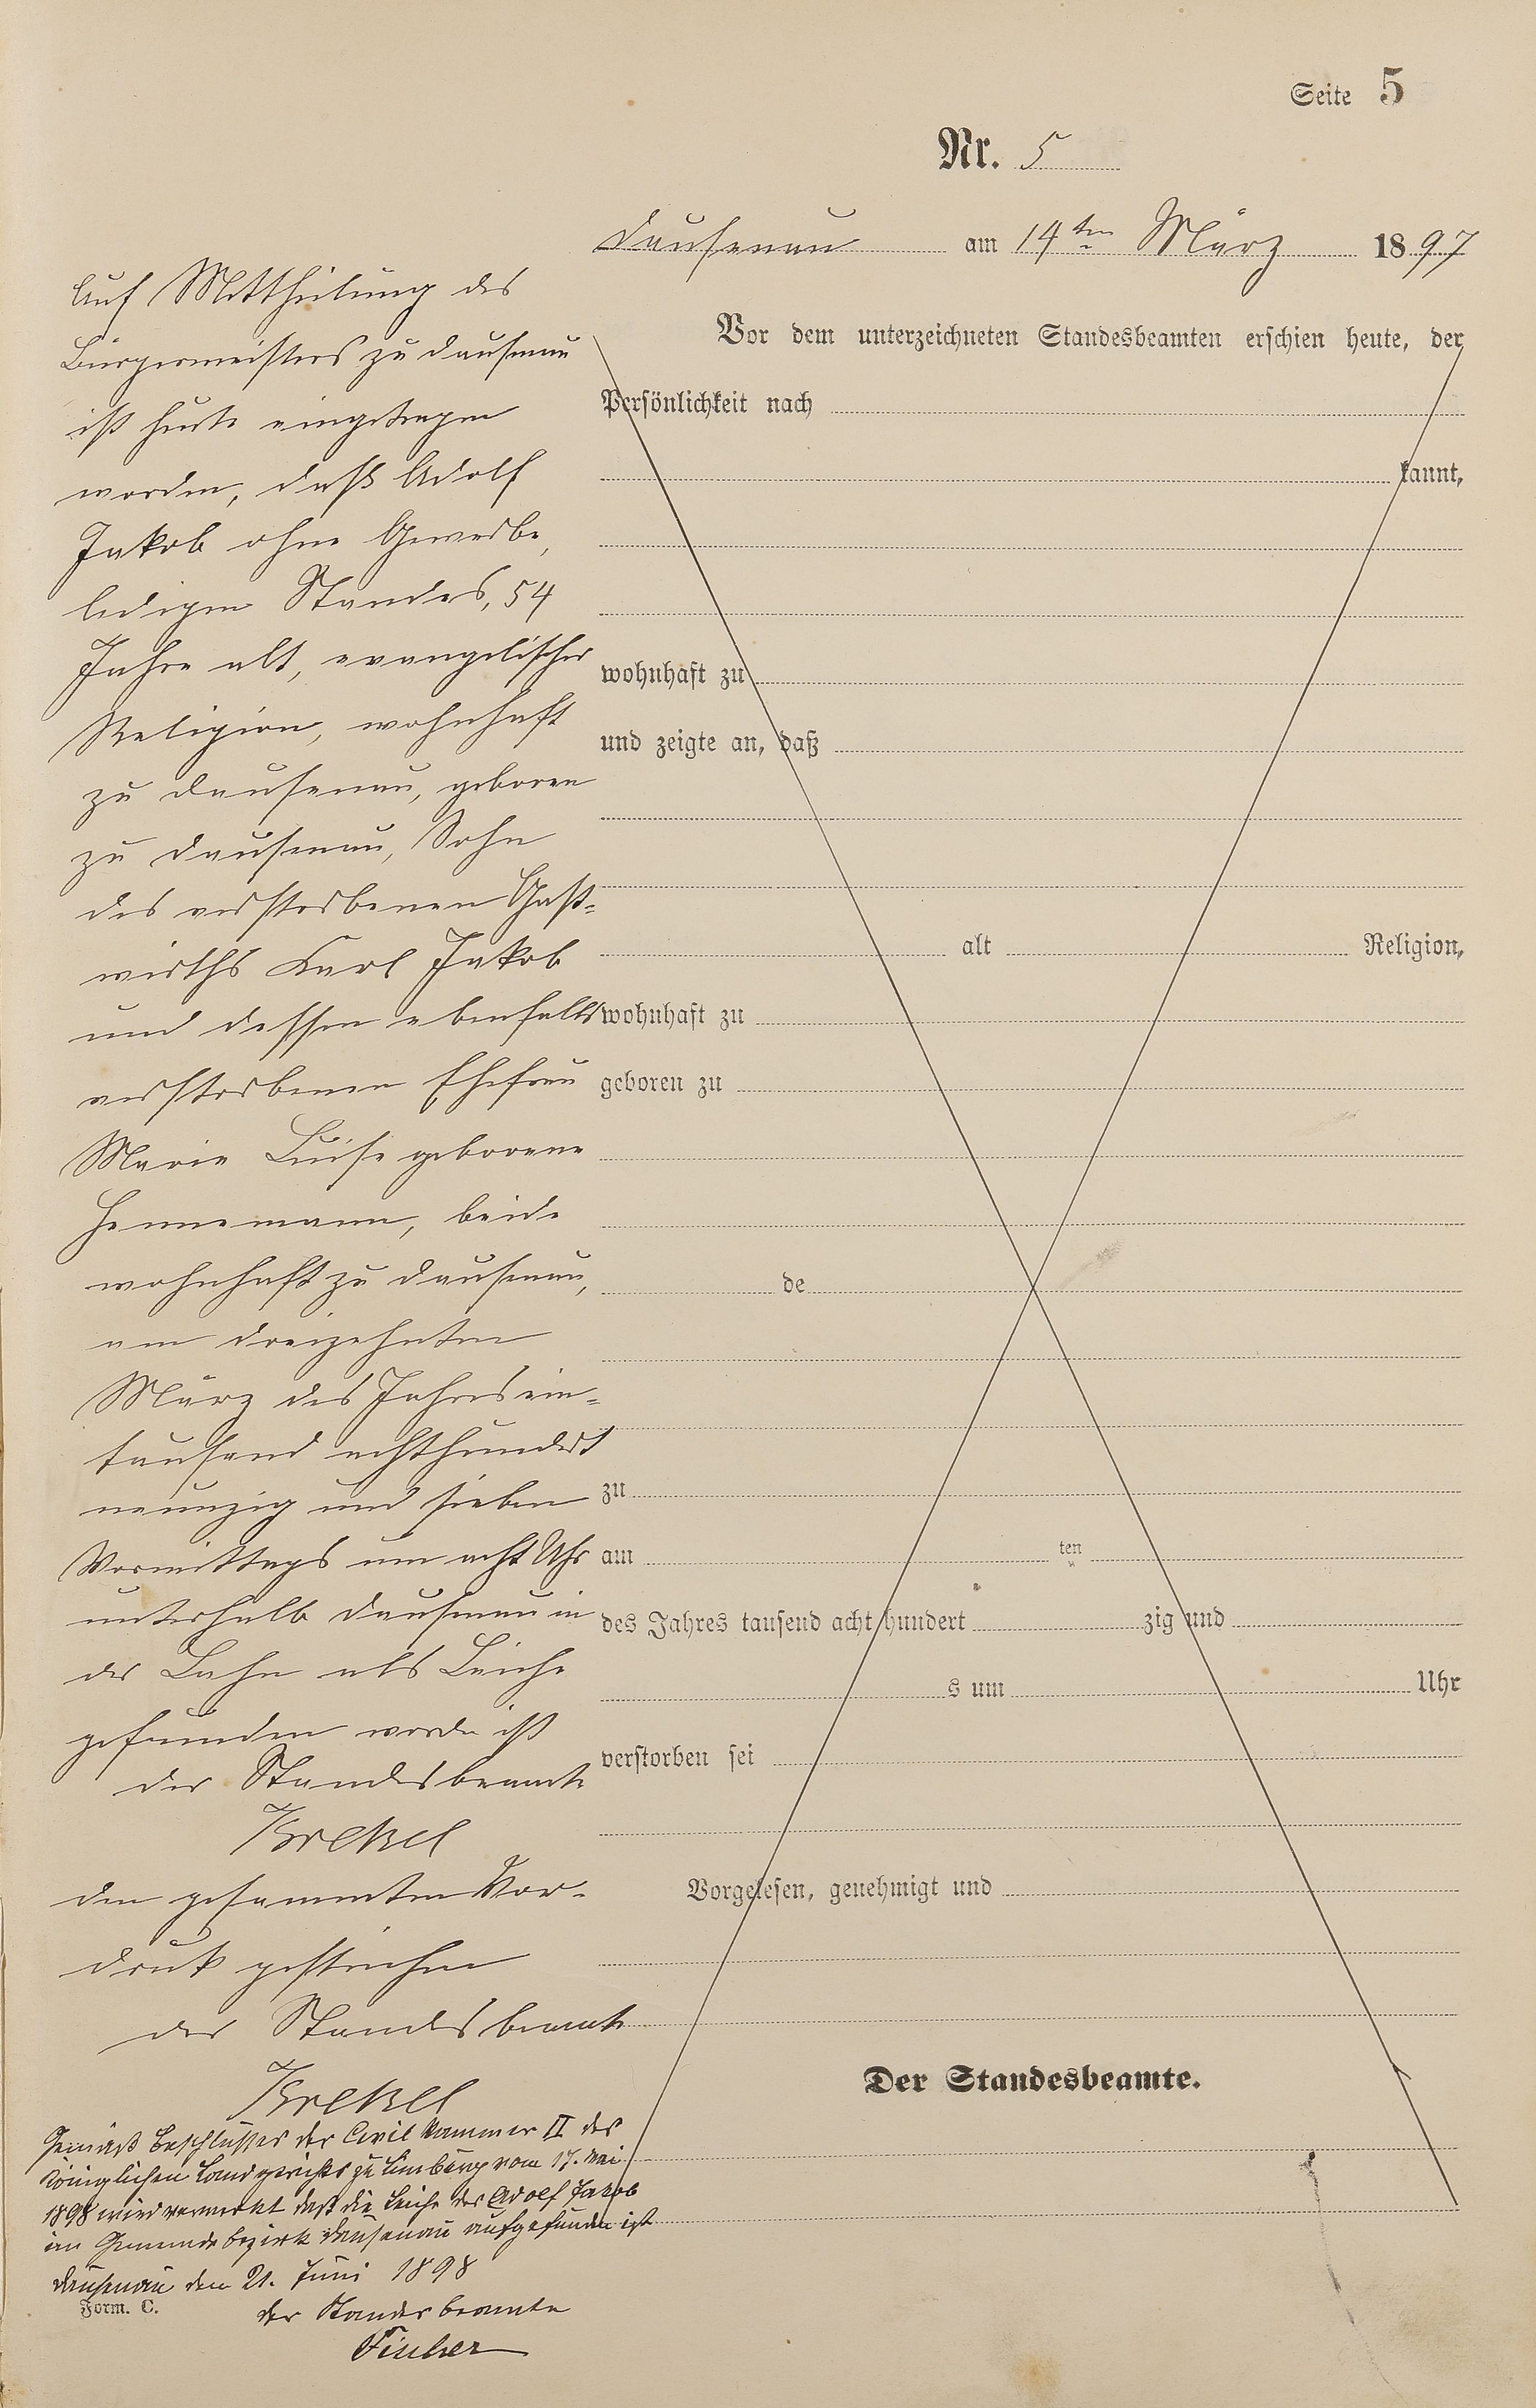 Seite 5
Nr. 5
Dausenau am 14ten März 1897
Auf Mittheilung des
Bürgermeisters zu Dausenau
ist heute eingetragen
worden, daß Adolf
Jakob ohne Gewerbe,
ledigen Standes, 54
Jahre alt, evangelischer
Religion, wohnhaft
zu Dausenau, geboren
zu Dausenau, Sohn
des verstorbenen Gast-
wirths Karl Jakob
und dessen ebenfalls
verstorbenen Ehefrau
Marie Luise geborene
Hennemann, beide
wohnhaft zu Dausenau,
am dreizehnten
März des Jahres ein-
tausend achthundert
neunzig und sieben
Vormittags um acht Uhr
unterhalb Dausenau in
der Lahn als Leiche
gefunden worde ist
der Standesbeamte
Krekel
den gesammten Vor-
druk gestrichen
der Standesbeamte
Krekel
Gemäß Beschlusses der Civil Kammer II des
Königlichen Landgerichts zu Limburg vom 17. Mai
1898 wird vermerkt daß die Leiche des Adolf Jakob
im Gemeindebezirk Dausenau aufgefunden ist
Dausenau den 21. Juni 1898
der Standesbeamte
Fischer
Form. C.
Vor dem unterzeichneten Standesbeamten erschien heute, der
Persönlichkeit nach
kannt,
wohnhaft zu
und zeigte an, daß
alt Religion,
wohnhaft zu
geboren zu
de
zu
am ten
des Jahres tausend acht hundert zig und
s um Uhr
verstorben sei
Vorgelesen, genehmigt und
Der Standesbeamte.